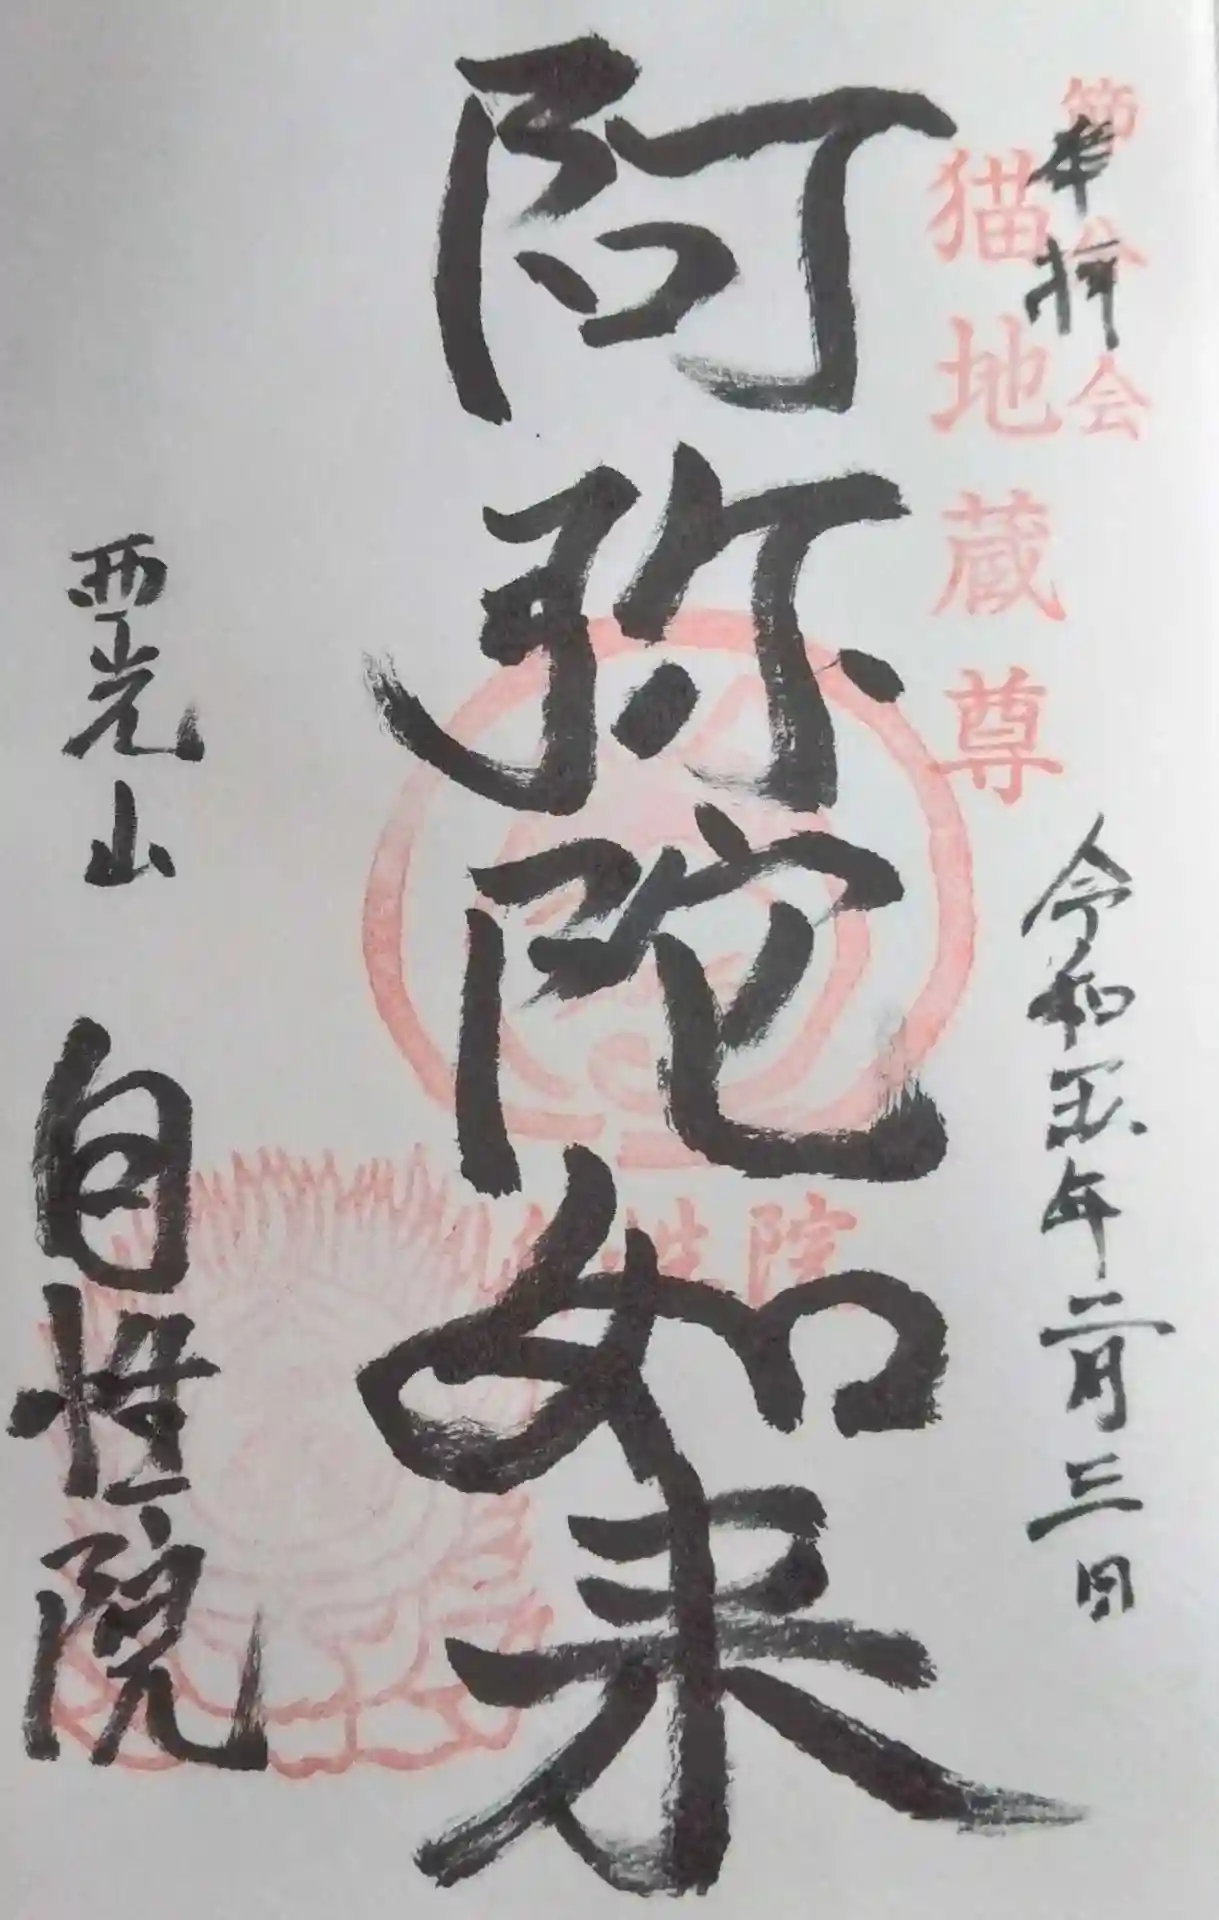 節分会
奉拝
猫地蔵尊
令和五年二月三日
阿弥陀如来
自性院
西光山
自性院